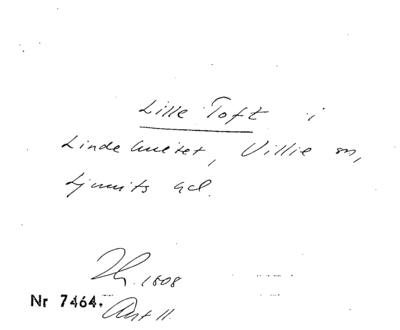 Lille Toft i
Lindehultet, Villie sn,
Ljunits hd.
1808
Nr 7464.
Ant 11.